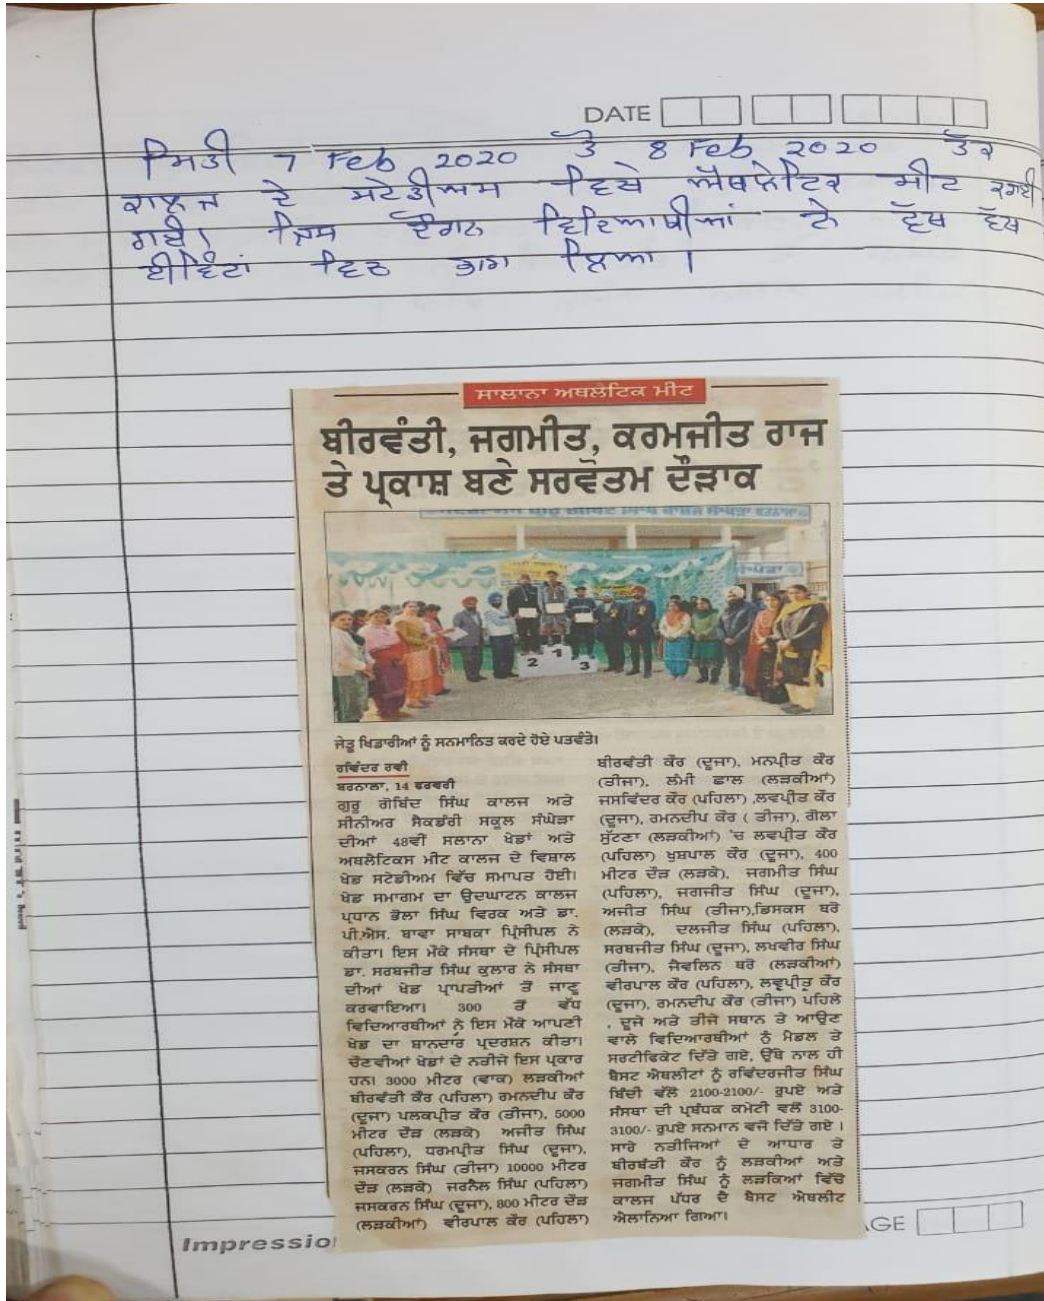 DATE
ਮਿਤੀ 7 Feb 2020 ਤੋਂ 8 Feb 2020 ਤੱਕ
ਕਾਲਜ ਦੇ ਸਟੇਡੀਅਮ ਵਿਖੇ ਐਥਲੇਟਿਕ ਮੀਟ ਕਰਾਈ
ਗਈ। ਜਿਸ ਦੌਰਾਨ ਵਿਦਿਆਰਥੀਆਂ ਨੇ ਵੱਖ ਵੱਖ
ਈਵੈਂਟਾਂ ਵਿਚ ਭਾਗ ਲਿਆ।
ਸਾਲਾਨਾ ਅਥਲੈਟਿਕ ਮੀਟ
ਬੀਰਵੰਤੀ, ਜਗਮੀਤ, ਕਰਮਜੀਤ ਰਾਜ
ਤੇ ਪ੍ਰਕਾਸ਼ ਬਣੇ ਸਰਵੋਤਮ ਦੌੜਾਕ
2 1 3
ਜੇਤੂ ਖਿਡਾਰੀਆਂ ਨੂੰ ਸਨਮਾਨਿਤ ਕਰਦੇ ਹੋਏ ਪਤਵੰਤੇ।
ਰਵਿੰਦਰ ਰਵੀ
ਬਰਨਾਲਾ, 14 ਫਰਵਰੀ
ਗੁਰੂ ਗੋਬਿੰਦ ਸਿੰਘ ਕਾਲਜ ਅਤੇ
ਸੀਨੀਅਰ ਸੈਕੰਡਰੀ ਸਕੂਲ ਸੰਘੇੜਾ
ਦੀਆਂ 48ਵੀਂ ਸਲਾਨਾ ਖੇਡਾਂ ਅਤੇ
ਅਥਲੈਟਿਕਸ ਮੀਟ ਕਾਲਜ ਦੇ ਵਿਸ਼ਾਲ
ਖੇਡ ਸਟੇਡੀਅਮ ਵਿੱਚ ਸਮਾਪਤ ਹੋਈ।
ਖੇਡ ਸਮਾਗਮ ਦਾ ਉਦਘਾਟਨ ਕਾਲਜ
ਪ੍ਰਧਾਨ ਭੋਲਾ ਸਿੰਘ ਵਿਰਕ ਅਤੇ ਡਾ.
ਪੀ.ਐਸ. ਬਾਵਾ ਸਾਬਕਾ ਪ੍ਰਿੰਸੀਪਲ ਨੇ
ਕੀਤਾ। ਇਸ ਮੌਕੇ ਸੰਸਥਾ ਦੇ ਪ੍ਰਿੰਸੀਪਲ
ਡਾ. ਸਰਬਜੀਤ ਸਿੰਘ ਕੁਲਾਰ ਨੇ ਸੰਸਥਾ
ਦੀਆਂ ਖੇਡ ਪ੍ਰਾਪਤੀਆਂ ਤੋਂ ਜਾਣੂ
ਕਰਵਾਇਆ। 300 ਤੋਂ ਵੱਧ
ਵਿਦਿਆਰਥੀਆਂ ਨੇ ਇਸ ਮੌਕੇ ਆਪਣੀ
ਖੇਡ ਦਾ ਸ਼ਾਨਦਾਰ ਪ੍ਰਦਰਸ਼ਨ ਕੀਤਾ।
ਚੋਣਵੀਆਂ ਖੇਡਾਂ ਦੇ ਨਤੀਜੇ ਇਸ ਪ੍ਰਕਾਰ
ਹਨ। 3000 ਮੀਟਰ (ਵਾਕ) ਲੜਕੀਆਂ
ਬੀਰਵੰਤੀ ਕੌਰ (ਪਹਿਲਾ) ਰਮਨਦੀਪ ਕੌਰ
(ਦੂਜਾ) ਪਲਕਪ੍ਰੀਤ ਕੌਰ (ਤੀਜਾ), 5000
ਮੀਟਰ ਦੌੜ (ਲੜਕੇ) ਅਜੀਤ ਸਿੰਘ
(ਪਹਿਲਾ), ਧਰਮਪ੍ਰੀਤ ਸਿੰਘ (ਦੂਜਾ),
ਜਸਕਰਨ ਸਿੰਘ (ਤੀਜਾ) 10000 ਮੀਟਰ
ਦੌੜ (ਲੜਕੇ) ਜਰਨੈਲ ਸਿੰਘ (ਪਹਿਲਾ)
ਜਸਕਰਨ ਸਿੰਘ (ਦੂਜਾ), 800 ਮੀਟਰ ਦੌੜ
(ਲੜਕੀਆਂ) ਵੀਰਪਾਲ ਕੌਰ (ਪਹਿਲਾ)
ਬੀਰਵੰਤੀ ਕੌਰ (ਦੂਜਾ), ਮਨਪ੍ਰੀਤ ਕੌਰ
(ਤੀਜਾ), ਲੰਮੀ ਛਾਲ (ਲੜਕੀਆਂ)
ਜਸਵਿੰਦਰ ਕੌਰ (ਪਹਿਲਾ) ,ਲਵਪ੍ਰੀਤ ਕੌਰ
(ਦੂਜਾ), ਰਮਨਦੀਪ ਕੌਰ ( ਤੀਜਾ), ਗੋਲਾ
ਸੁੱਟਣਾ (ਲੜਕੀਆਂ) 'ਚ ਲਵਪ੍ਰੀਤ ਕੌਰ
(ਪਹਿਲਾ) ਖੁਸ਼ਪਾਲ ਕੌਰ (ਦੂਜਾ), 400
ਮੀਟਰ ਦੌੜ (ਲੜਕੇ), ਜਗਮੀਤ ਸਿੰਘ
(ਪਹਿਲਾ), ਜਗਜੀਤ ਸਿੰਘ (ਦੂਜਾ),
ਅਜੀਤ ਸਿੰਘ (ਤੀਜਾ),ਡਿਸਕਸ ਥਰੋ
(ਲੜਕੇ), ਦਲਜੀਤ ਸਿੰਘ (ਪਹਿਲਾ),
ਸਰਬਜੀਤ ਸਿੰਘ (ਦੂਜਾ), ਲਖਵੀਰ ਸਿੰਘ
(ਤੀਜਾ), ਜੈਵਲਿਨ ਥਰੋ (ਲੜਕੀਆਂ)
ਵੀਰਪਾਲ ਕੌਰ (ਪਹਿਲਾ), ਲਵਪ੍ਰੀਤ ਕੌਰ
(ਦੂਜਾ), ਰਮਨਦੀਪ ਕੌਰ (ਤੀਜਾ) ਪਹਿਲੇ
, ਦੂਜੇ ਅਤੇ ਤੀਜੇ ਸਥਾਨ ਤੇ ਆਉਣ
ਵਾਲੇ ਵਿਦਿਆਰਥੀਆਂ ਨੂੰ ਮੈਡਲ ਤੇ
ਸਰਟੀਫਿਕੇਟ ਦਿੱਤੇ ਗਏ, ਉੱਥੇ ਨਾਲ ਹੀ
ਬੈਸਟ ਐਥਲੀਟਾਂ ਨੂੰ ਰਵਿੰਦਰਜੀਤ ਸਿੰਘ
ਬਿੰਦੀ ਵੱਲੋਂ 2100-2100/- ਰੁਪਏ ਅਤੇ
ਸੰਸਥਾ ਦੀ ਪ੍ਰਬੰਧਕ ਕਮੇਟੀ ਵਲੋਂ 3100-
3100/- ਰੁਪਏ ਸਨਮਾਨ ਵਜੋਂ ਦਿੱਤੇ ਗਏ ।
ਸਾਰੇ ਨਤੀਜਿਆਂ ਦੇ ਆਧਾਰ ਤੇ
ਬੀਰਬੰਤੀ ਕੌਰ ਨੂੰ ਲੜਕੀਆਂ ਅਤੇ
ਜਗਮੀਤ ਸਿੰਘ ਨੂੰ ਲੜਕਿਆਂ ਵਿੱਚੋਂ
ਕਾਲਜ ਪੱਧਰ ਦੇ ਬੈਸਟ ਐਥਲੀਟ
ਐਲਾਨਿਆ ਗਿਆ।
Impressio
GE